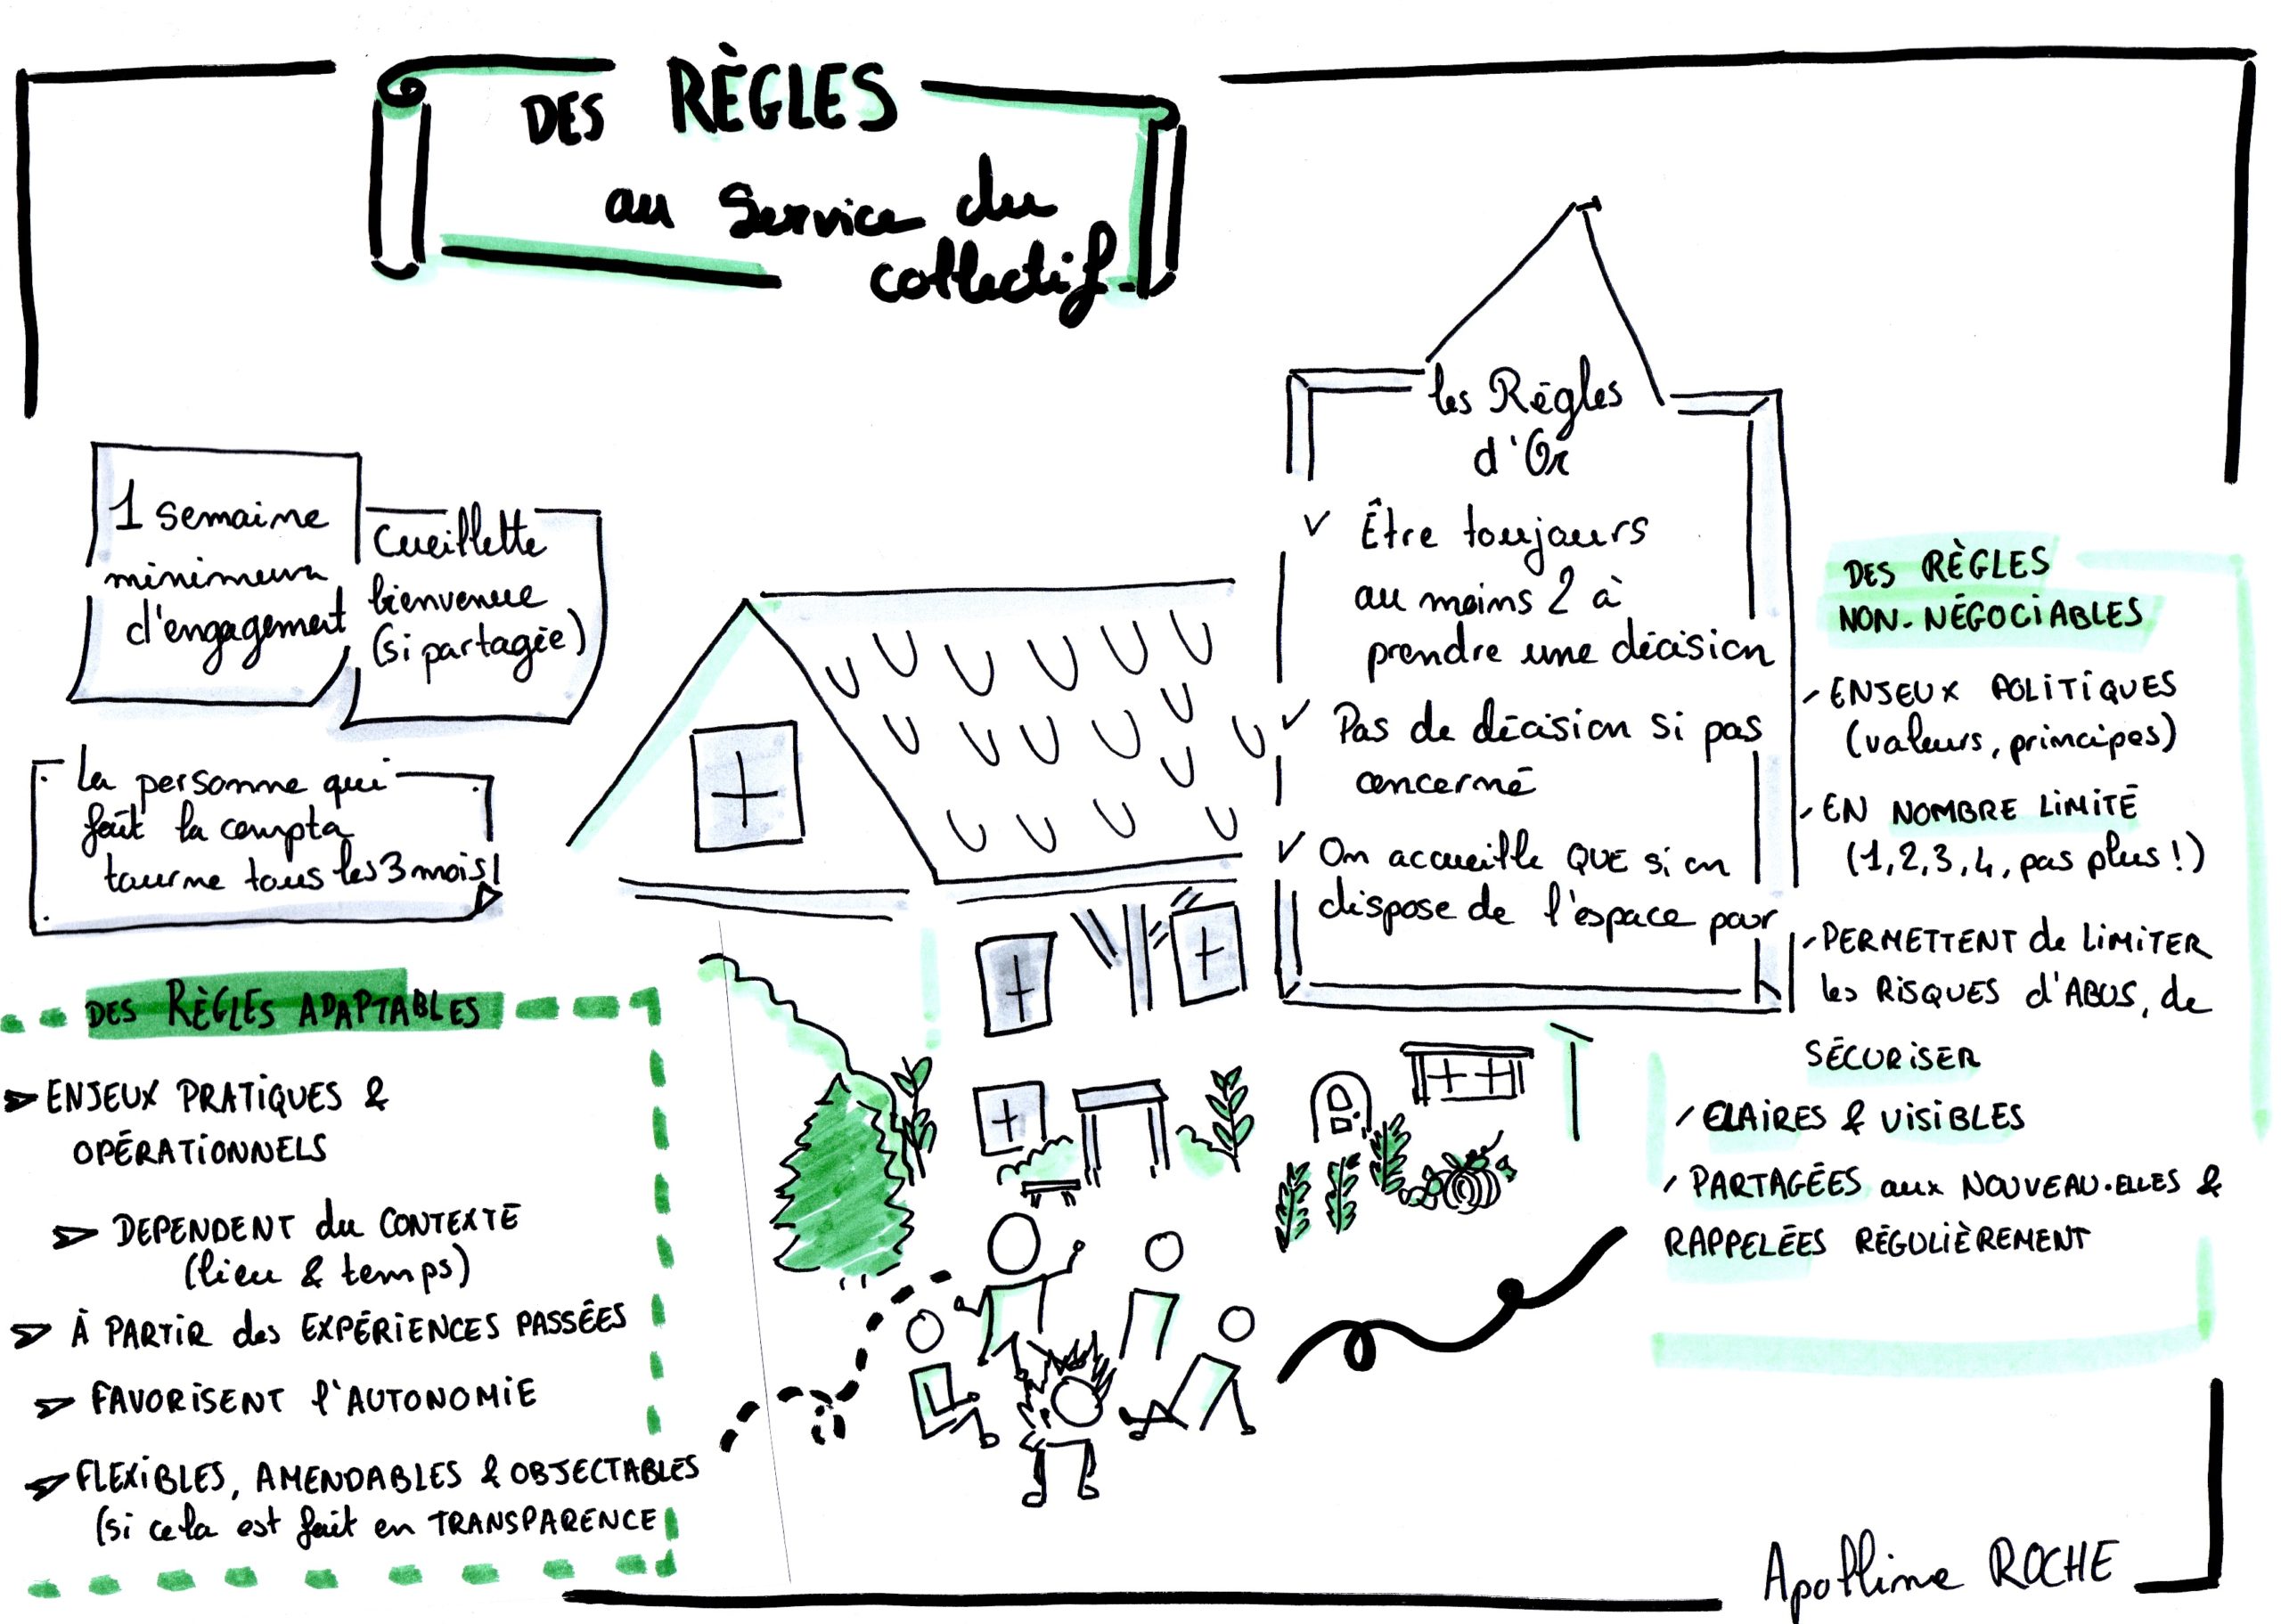 DES RÈGLES
au Service du
collectif.
1 semaine
minimum
d'engagement
Cueillette
bienvenue
(si partagée)
La personne qui
fait la compta
tourne tous les 3 mois!
DES RÈGLES ADAPTABLES
ENJEUX PRATIQUES &
OPÉRATIONNELS
DEPENDENT du CONTEXTE
(lieu & temps)
À PARTIR des EXPÉRIENCES PASSÉES
FAVORISENT l'AUTONOMIE
FLEXIBLES, AMENDABLES & OBJECTABLES
(si cela est fait en TRANSPARENCE
les Règles
d'Or
✓ Être toujours
au moins 2 à
prendre une décision
✓ Pas de décision si pas
concerné
✓ On accueille QUE si on
dispose de l'espace pour
DES RÈGLES
NON-NÉGOCIABLES
ENJEUX POLITIQUES
(valeurs, principes)
EN NOMBRE LIMITÉ
(1,2,3,4, pas plus!)
PERMETTENT de LIMITER
les RISQUES d'ABUS, de
SÉCURISER
CLAIRES & VISIBLES
PARTAGÉES aux NOUVEAU.ELLES &
RAPPELÉES RÉGULIÈREMENT
Apolline ROCHE